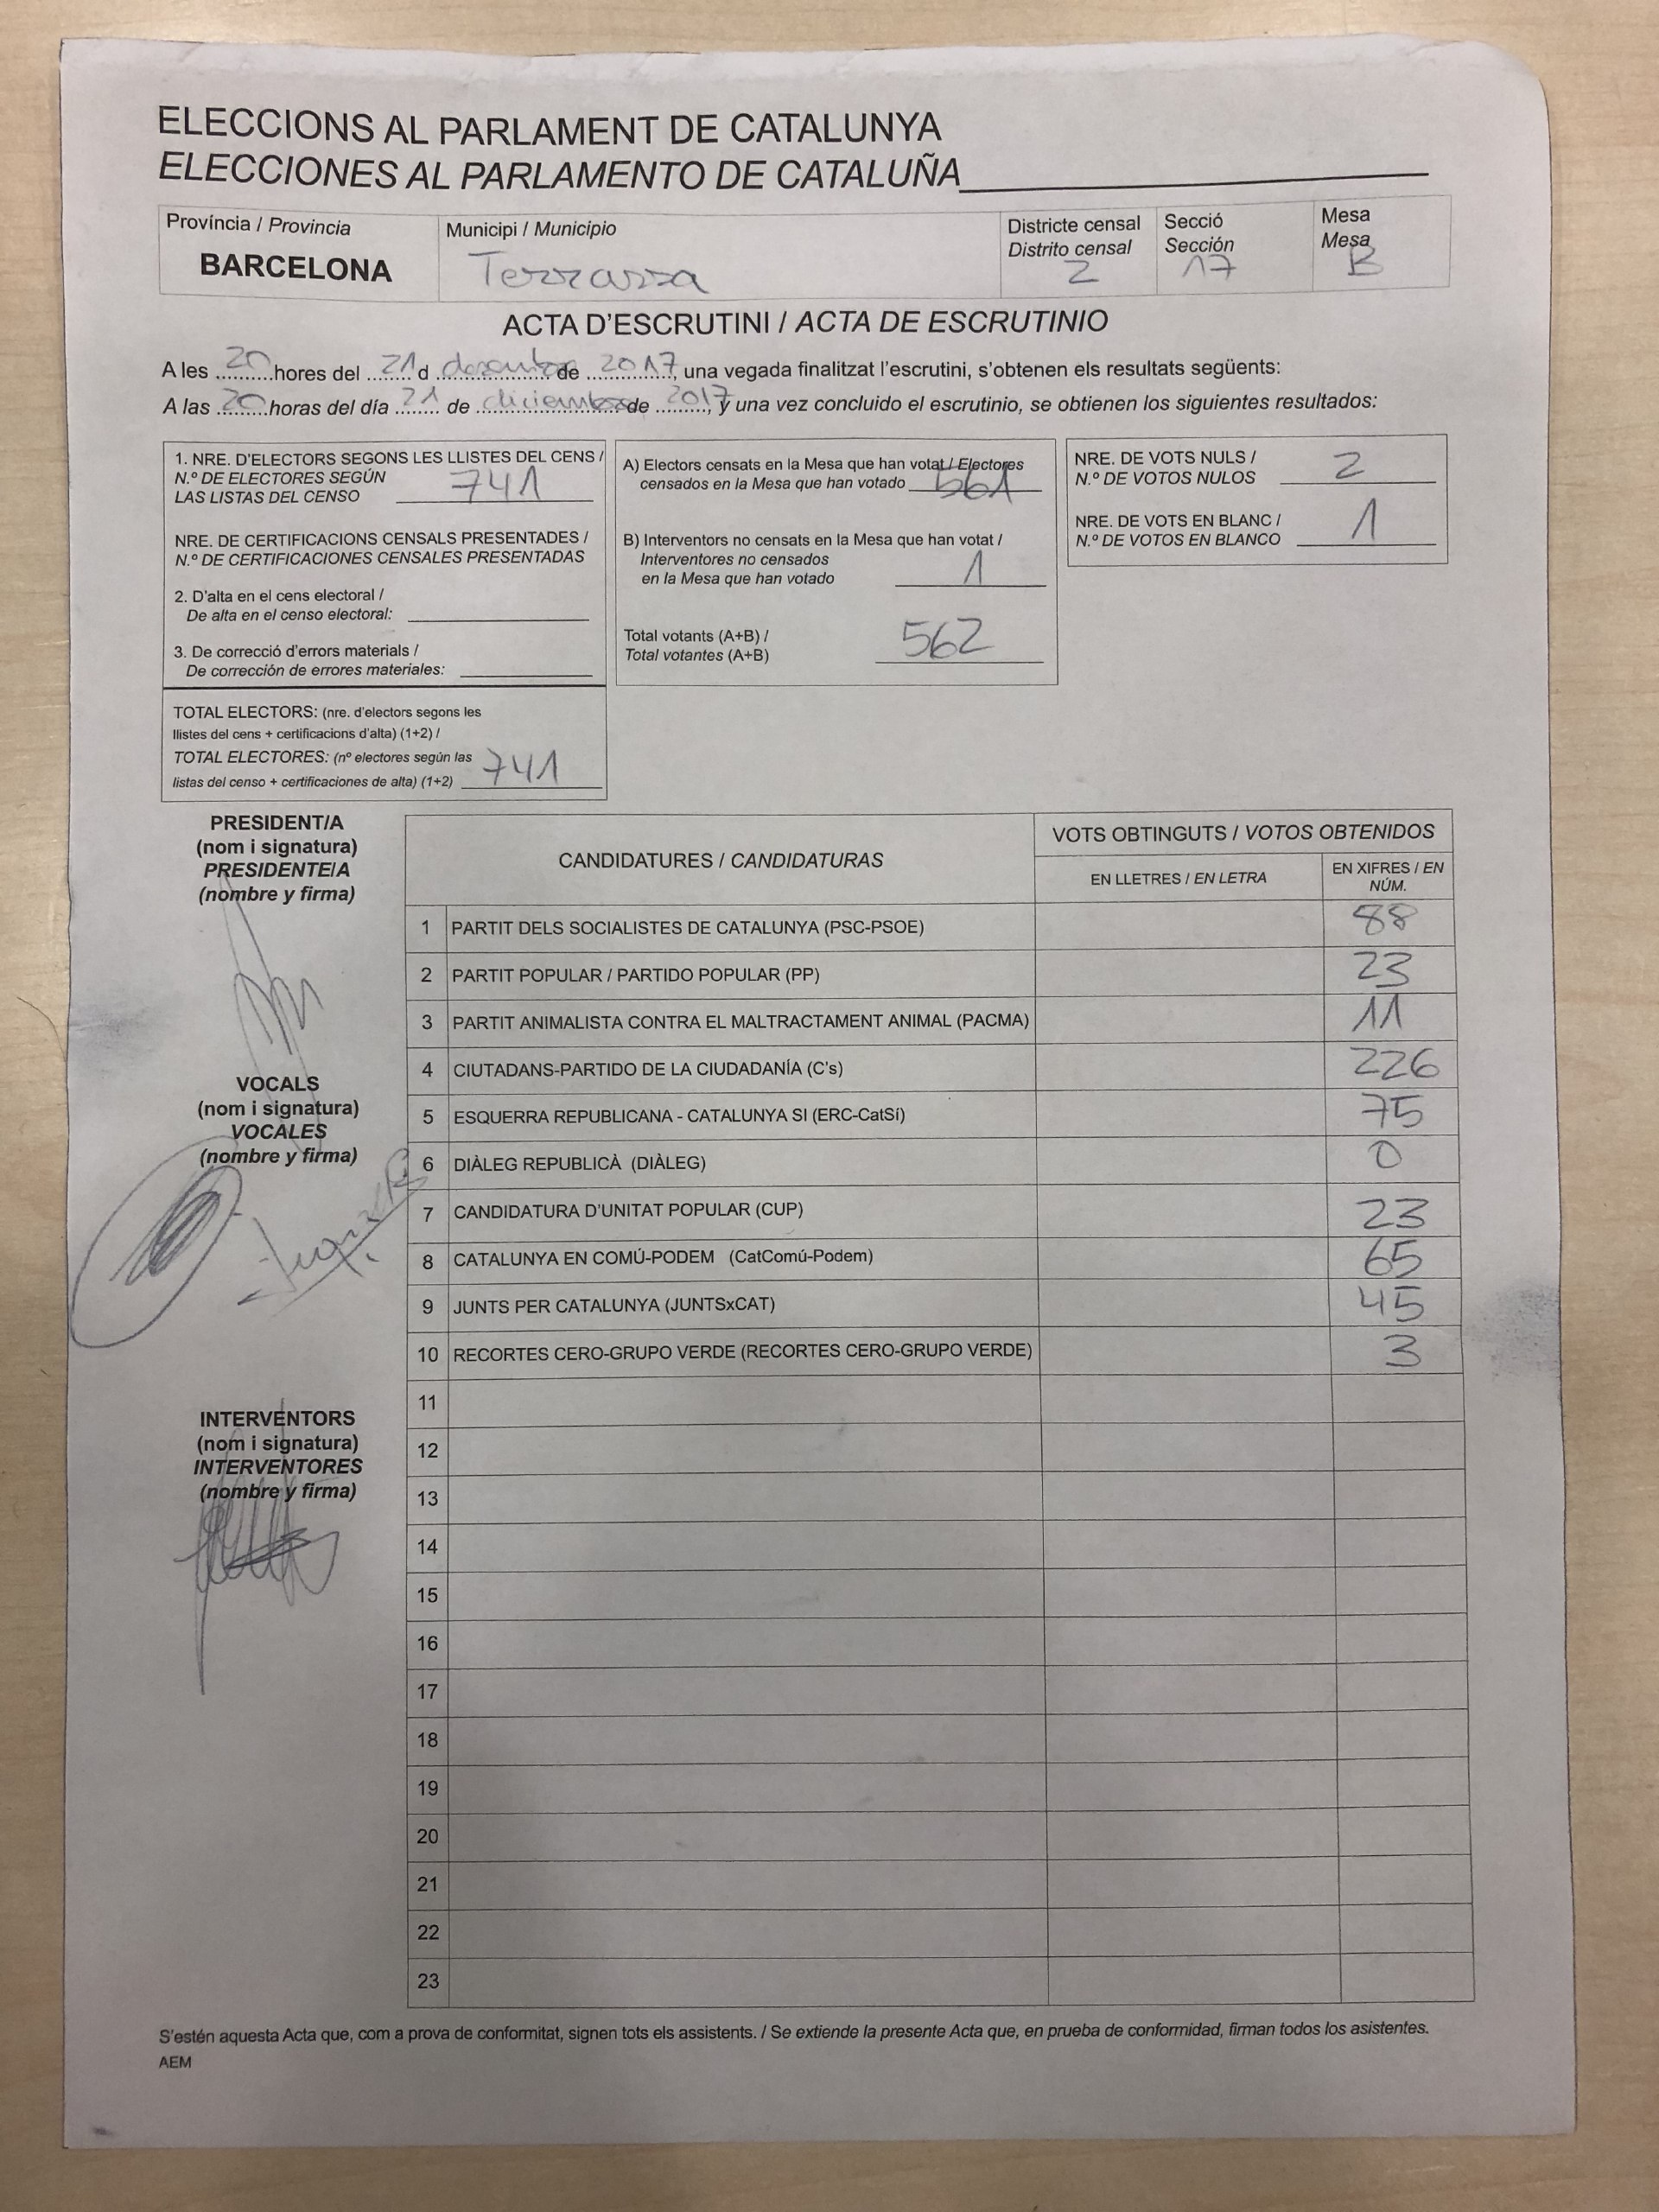 ELECCIONS AL PARLAMENT DE CATALUNYA
ELECCIONES AL PARLAMENTO DE CATALUÑA
Província / Provincia
BARCELONA
Municipi / Municipio
Terrassa
Districte censal
Distrito censal
2
Secció
Sección
17
Mesa
Mesa
B
ACTA D'ESCRUTINI / ACTA DE ESCRUTINIO
A les 20 hores del 21 d desembre de 2017, una vegada finalitzat l'escrutini, s'obtenen els resultats següents:
A las 20 horas del día 21 de diciembre de 2017, y una vez concluido el escrutinio, se obtienen los siguientes resultados:
1. NRE. D'ELECTORS SEGONS LES LLISTES DEL CENS /
N.º DE ELECTORES SEGÚN
LAS LISTAS DEL CENSO 741
NRE. DE CERTIFICACIONS CENSALS PRESENTADES /
N.º DE CERTIFICACIONES CENSALES PRESENTADAS
2. D'alta en el cens electoral /
De alta en el censo electoral:
3. De correcció d'errors materials /
De corrección de errores materiales:
TOTAL ELECTORS: (nre. d'electors segons les
llistes del cens + certificacions d'alta) (1+2) /
TOTAL ELECTORES: (nº electores según las
listas del censo + certificaciones de alta) (1+2) 741
A) Electors censats en la Mesa que han votat / Electores
censados en la Mesa que han votado 561
B) Interventors no censats en la Mesa que han votat /
Interventores no censados
en la Mesa que han votado 1
Total votants (A+B) /
Total votantes (A+B) 562
NRE. DE VOTS NULS /
N.º DE VOTOS NULOS 2
NRE. DE VOTS EN BLANC /
N.º DE VOTOS EN BLANCO 1
PRESIDENT/A
(nom i signatura)
PRESIDENTE/A
(nombre y firma)
VOCALS
(nom i signatura)
VOCALES
(nombre y firma)
INTERVENTORS
(nom i signatura)
INTERVENTORES
(nombre y firma)
CANDIDATURES / CANDIDATURAS
VOTS OBTINGUTS / VOTOS OBTENIDOS
EN LLETRES / EN LETRA
EN XIFRES / EN
NÚM.
1 PARTIT DELS SOCIALISTES DE CATALUNYA (PSC-PSOE) 88
2 PARTIT POPULAR / PARTIDO POPULAR (PP) 23
3 PARTIT ANIMALISTA CONTRA EL MALTRACTAMENT ANIMAL (PACMA) 11
4 CIUTADANS-PARTIDO DE LA CIUDADANÍA (C's) 226
5 ESQUERRA REPUBLICANA - CATALUNYA SI (ERC-CatSí) 75
6 DIÀLEG REPUBLICÀ (DIÀLEG) 0
7 CANDIDATURA D'UNITAT POPULAR (CUP) 23
8 CATALUNYA EN COMÚ-PODEM (CatComú-Podem) 65
9 JUNTS PER CATALUNYA (JUNTSxCAT) 45
10 RECORTES CERO-GRUPO VERDE (RECORTES CERO-GRUPO VERDE) 3
11
12
13
14
15
16
17
18
19
20
21
22
23
S'estén aquesta Acta que, com a prova de conformitat, signen tots els assistents. / Se extiende la presente Acta que, en prueba de conformidad, firman todos los asistentes.
AEM